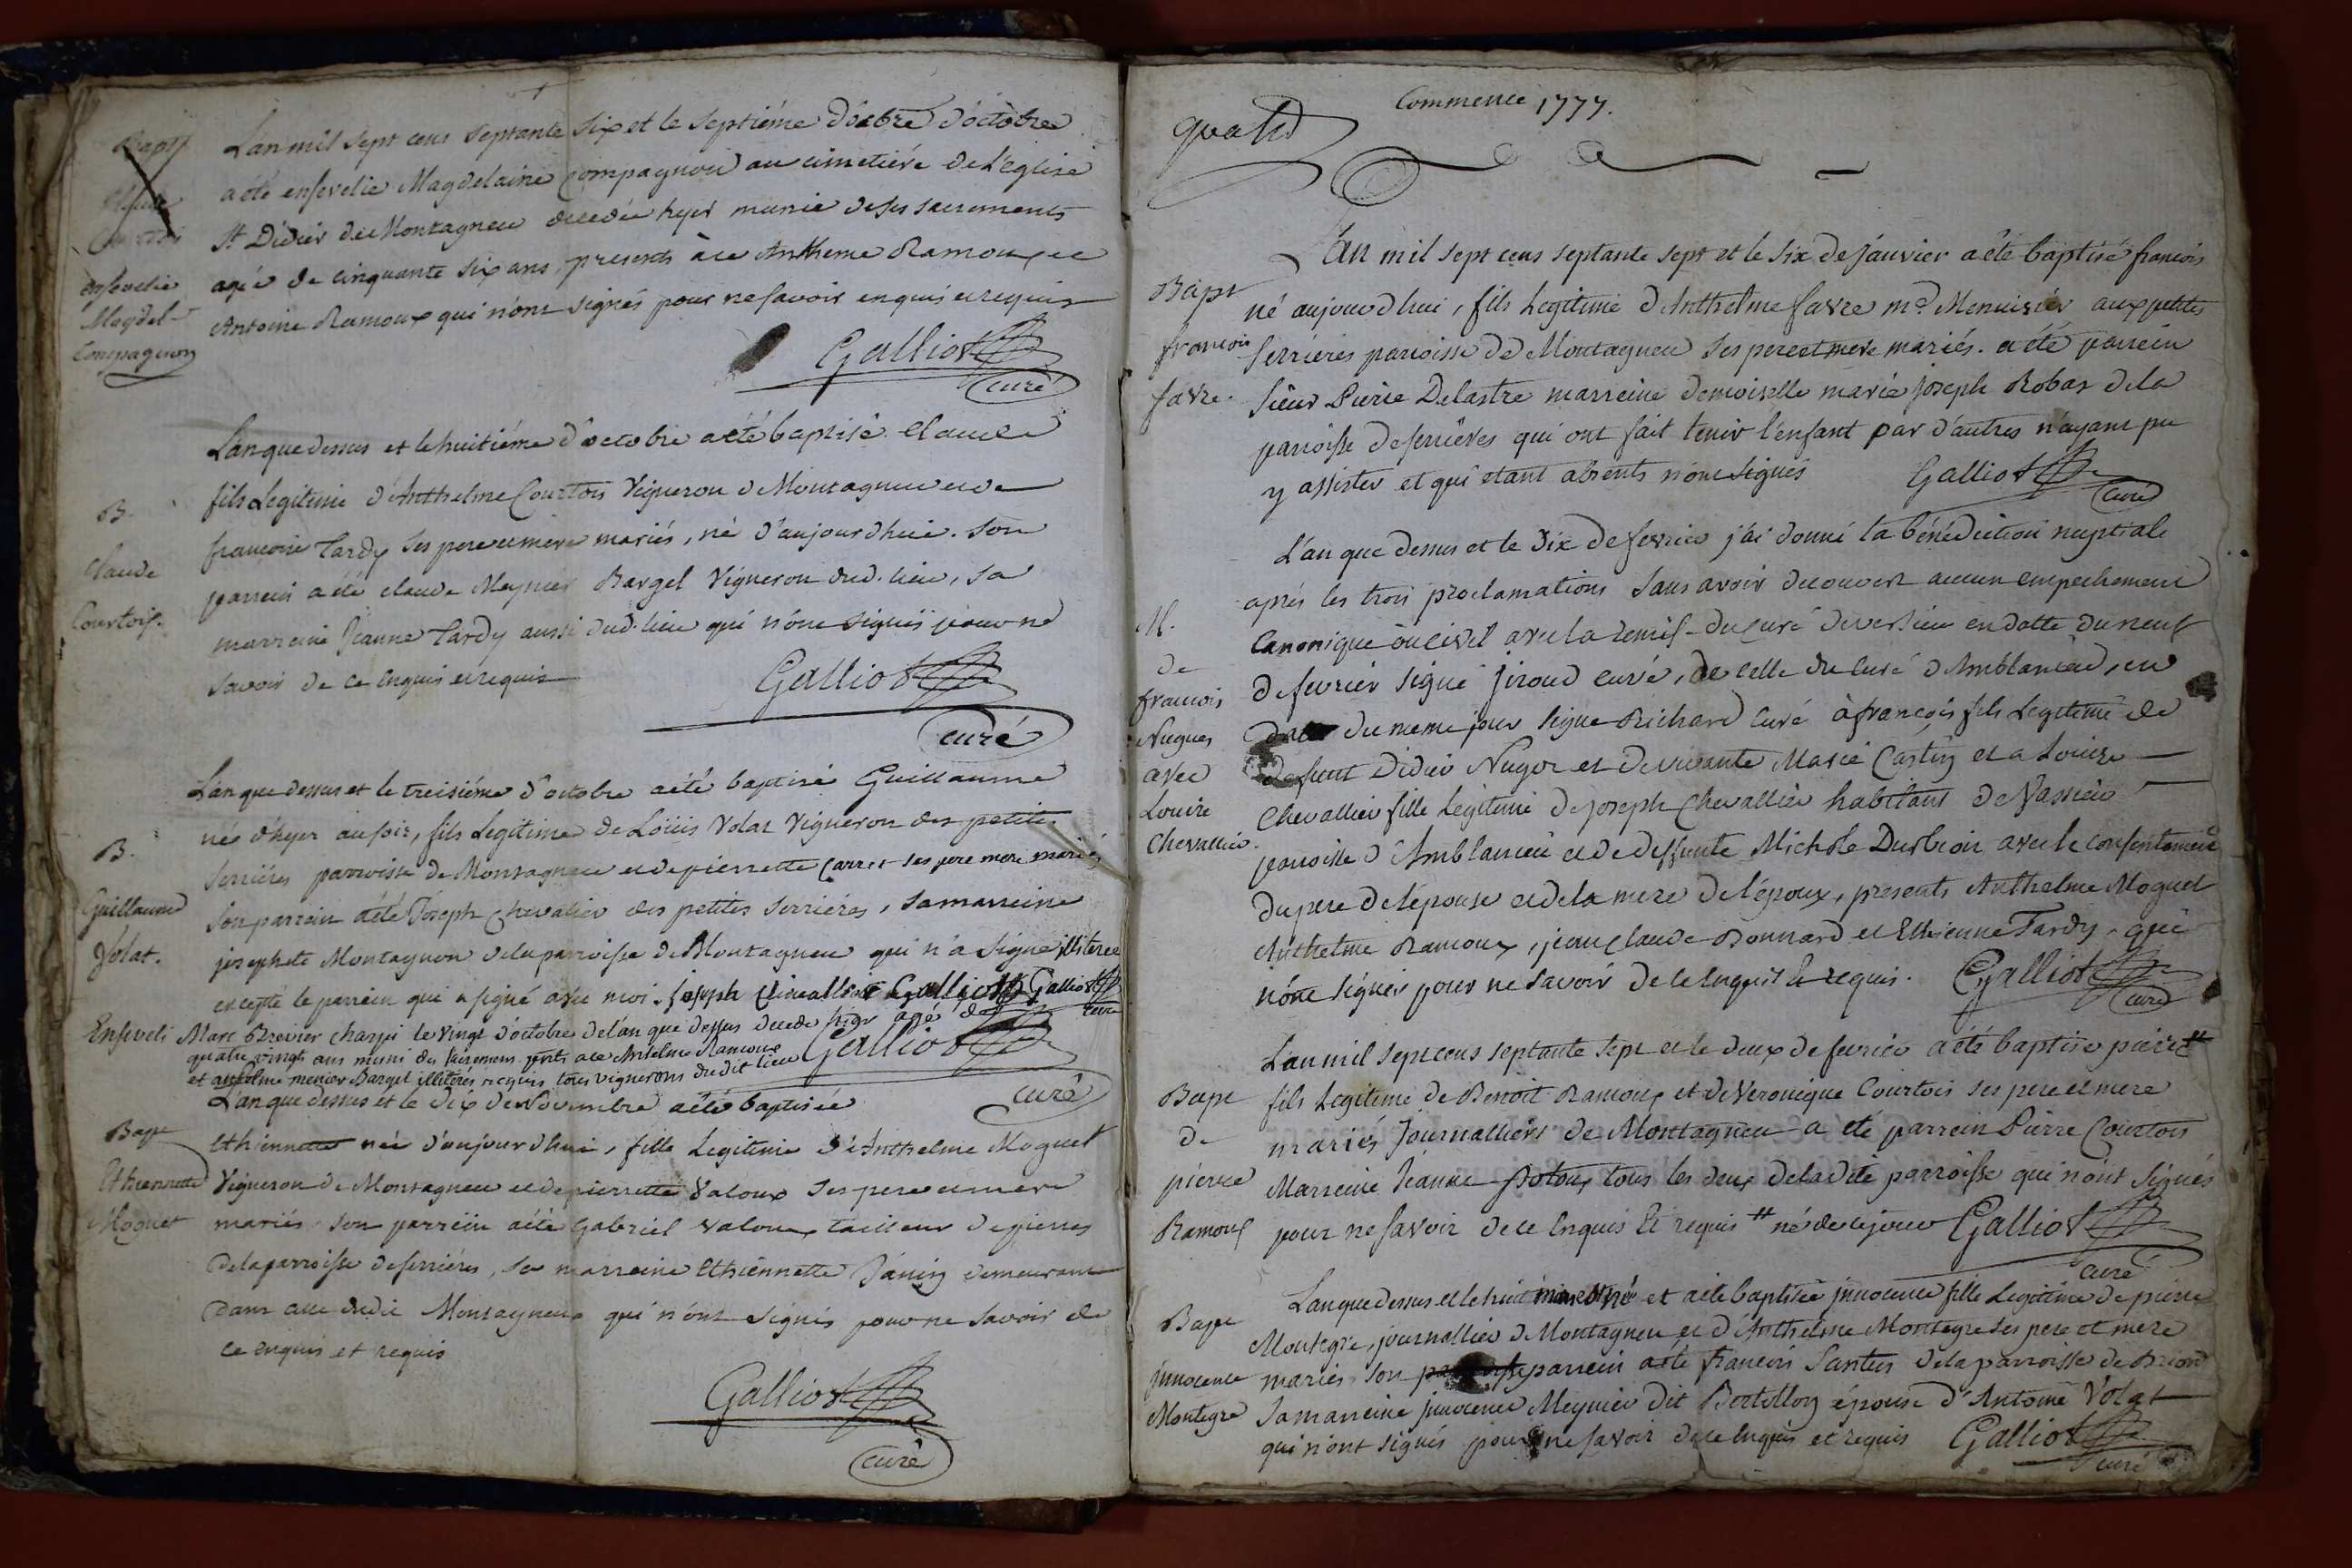 Bapt
Claude
Courtois
ensevelie
Magdel
Compagnon
L'an mil sept cens septante six et le septiéme d'octobre
a été ensevelie Magdelaine Compagnon au cimetiére de L'eglise
St Didier de Montagneu decedée hyer munie de ses sacrements
agée de cinquante six ans, presents à ce Anthelme Ramoux et
Antoine Ramoux qui n'ont signés pour ne savoir enquis et requis
Galliot
curé
B.
Claude
Courtois.
L'an que dessus et le huitiéme d'octobre a été baptisé Claude
fils Legitime d'Anthelme Courtois Vigneron d Montagneu et de
francoise Tardy ses pere et mere mariés, né d'aujourdhui. son
parrein a été claude Meynier Bargel Vigneron dud. lieu, sa
marreine Jeanne Tardy aussi dud. lieu qui n'ont signés pour ne
savoir de ce enquis et requis
Galliot
curé
B.
Guillaume
Volat.
L'an que dessus et le treisiéme d'octobre a été baptisé Guillaume
né d'hyer au soir, fils Legitime de Loüis Volat Vigneron des petites
Serriéres parroisse de Montagneu et de pierrette Carret ses pere mere mariés
son parrein a été Joseph Chevalier des petites Serriéres, sa marreine
josephete Montagnon de la parroisse de Montagneu qui n'a signé illiteree
excepté le parrein qui a signé avec moi. joseph Chevallier Galliot Galliot
curé
Enseveli Marc Brevier Charpi le vingt d'octobre de l'an que dessus decede hyer agé de
quatre vingts ans muni des sacremens pnts a ce Anthelme Ramoux
et anthelme menier Bargel illiterés requis tous vignerons dudit lieu Galliot
curé
Bapt
Ethiennette
Moguet
L'an que dessus et le dix de Novembre a été baptisée
Ethiennette née d'aujourdhui, fille Legitime d'Anthelme Moguet
Vigneron de Montagneu et de pierrette Valoux ses pere et mere
mariés son parrein a été Gabriel Valoux tailleur de pierres
de la parroisse de serriéres, sa marreine Ethiennette Janin demeurant
dans audit Montagneu qui n'ont signés pour ne savoir de
ce enquis et requis
Galliot
curé
Commence 1777.
Bapt
francois
favre.
L'an mil sept cens septante sept et le six de Janvier a été baptisé francois
né aujourdhui, fils Legitime d'Anthelme favre md. Menuisier aux petites
serriéres parroisse de Montagneu ses pere et mere mariés. a été parrein
Sieur Pierre Delastre marreine demoiselle marie joseph Robas de la
parroisse de serriéres qui ont fait tenir l'enfant par d'autres n'ayant pu
y assister et qui etant absents n'ont signés Galliot
curé
M.
de
francois
Nugues
avec
Louise
Chevallier.
L'an que dessus et le dix de fevrier j'ai donné la bénédiction nuptiale
aprés les trois proclamations sans avoir decouvert aucun empechement
canonique ou civil avec la remise du curé de versieu en datte du neuf
de fevrier signé Jiroud curé, de celle du curé d'Amblaneu, en
date du meme jour signé Richard curé à francois fils Legitime de
defunt Didier Nugoz et de vivante Marie Castin et a Louise
Chevallier fille Legitime de joseph Chevallier habitans de Vassieu
parroisse d'Amblanieu et de deffunte Michole Durbon avec le consentement
du pere de l'épouse et de la mere de l'époux, presents Anthelme Moguet
Anthelme Ramoux, jean claude Bonnard et Ethienne Tardy qui
n'ont signés pour ne savoir de ce enquis et requis. Galliot
curé
Bapt
de
pierre
Ramoux
L'an mil sept cens septante sept et le deux de fevrier a été baptisé pierre #
fils Legitime de Benoit Ramoux et de Veronique Courtois ses pere et mere
mariés Journalliers de Montagneu a été parrein Pierre Courtois
Marreine Jeanne tous les deux de la dite parroisse qui n'ont signés
pour ne savoir de ce enquis et requis # né de ce jour Galliot
curé
Bapt
innocence
Montegre
L'an que dessus et le huit née et a été baptisée innocence fille Legitime de pierre
Montegre, journallier d Montagneu et d'Anthelme Montegre ses pere et mere
mariés son parrein a été francois Santus de la parroisse de Briord
sa marreine innocence Meynier dit Bertollon épouse d'Antoine Volat
qui n'ont signés pour ne savoir de ce enquis et requis Galliot
curé